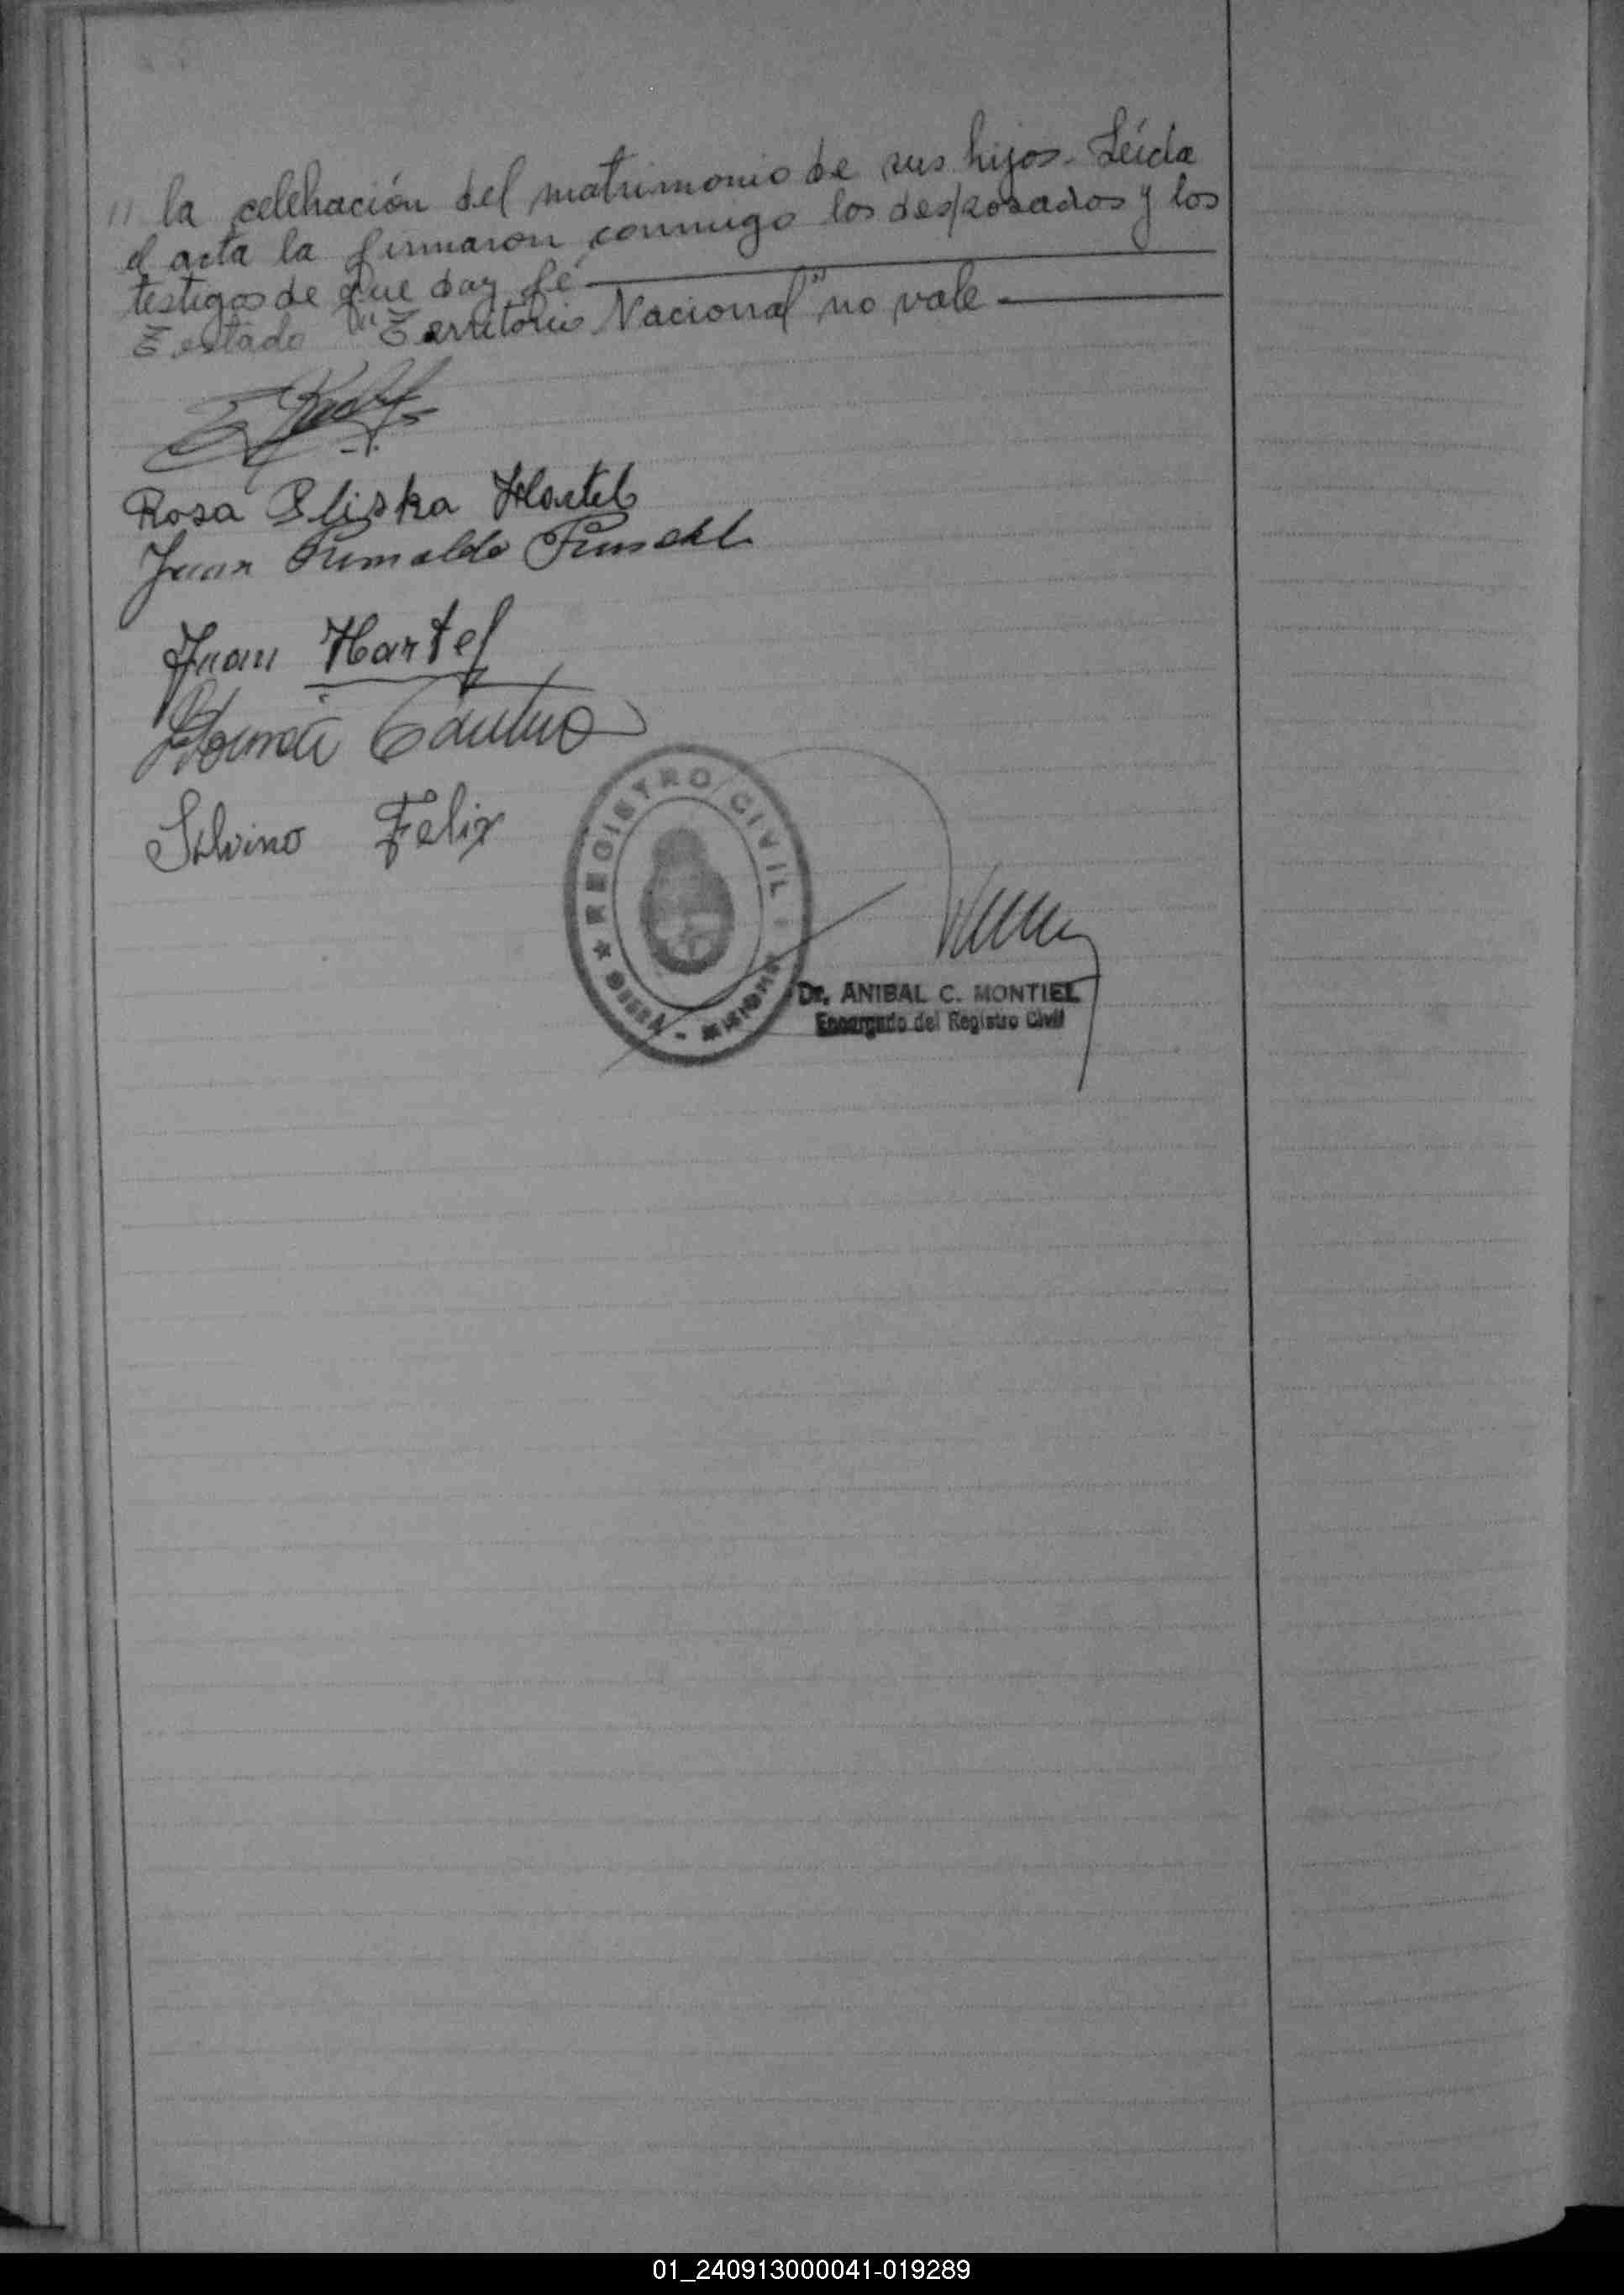 " la celebración del matrimonio de sus hijos. Leída
el acta la firmaron conmigo los desposados y los
testigos de que doy fé
Testado "Territorio Nacional" no vale
Rosa Eliska Hartel
Juan
Juan Hartel
Silvino Felix
REGISTRO CIVIL
MISIONES
Dr. ANIBAL C. MONTIEL
Encargado del Registro Civil
01_240913000041-019289